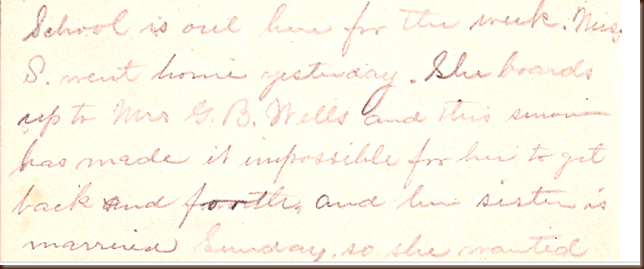 School is out here for the week. Miss
S. went home yesterday. She boards
up to Mrs G. B. Wells and this snow
has made it impossible for her to get
back and forth, and her sister is
married Sunday, so she wanted